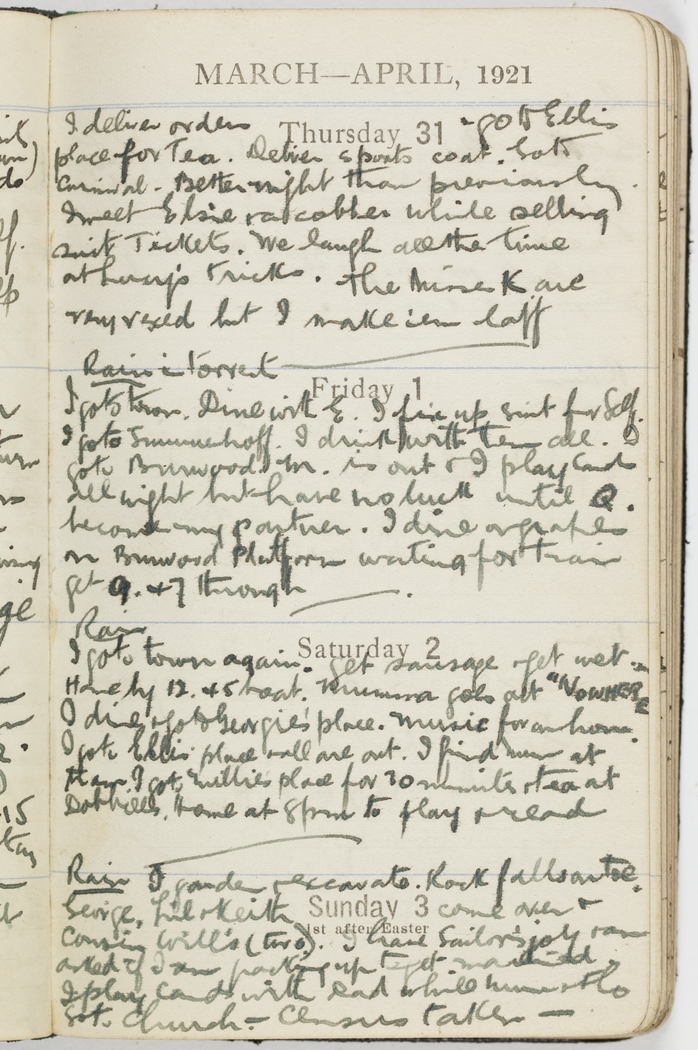 MARCH—APRIL, 1921
I deliver orders Thursday 31 - go to Ellis
place for Tea. Deliver sports coat. Go to
Carnival. Better night than previously.
I meet Elsie & a cobber while selling
suit Tickets. We laugh all the time
at Lucy's tricks. The Misses K are
very vexed but I make 'em laff
Rain i Torrent
Friday 1
I go to town. Dine with E. I fix up suit for Self.
I go to Summerhoff. I drink with them all. I
go to Burwood. M. is out & I play Cards
all night but have no luck until Q.
become my partner. I dine on grapes
on Burwood Platform waiting for train
get 9.47 through
Rain
Saturday 2
I go to town again. Get sausage & get wet
Home by 12.45 boat. Mumma goes out "NOWHERE"
I dine & go to Georgie's place. Music for an hour.
I go to Ellis' place & all are out. I find mum at
them. I go to Millie's place for 30 minutes & tea at
Home at 8pm to play & read
Rain I garden & excavate. Rock falls on toe.
George, Lil & Keith Sunday 3 come over &
1st after Easter
Cousin Will's (two). I have Sailor's
asked if I am packing up to get married.
I play Cards with dad while mum & Flo
go to Church - Census taken -